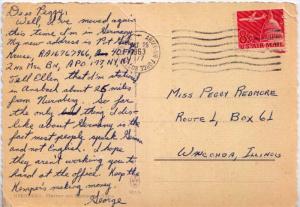 Dear Peggy,
Well, I've moved again
this time I'm in Germany
My new address is Pvt.
House, RA16767966, 40 FA
2nd Msl Bn, APO 177, NY, NY.
Tell Ellen that I'm station
in Ansbach about 25 miles
from Nurnberg. So far
the only thing I dis-
like about Germany is the
fact most people speak German
and not English. I
hope they aren't working you to
hard at the office. Keep the
Kemper's making money.
George
ARMY
1963
8c
U.S. AIR MAIL
Miss Peggy Redmore
Route 1, Box 61
Wauconda, Illinois